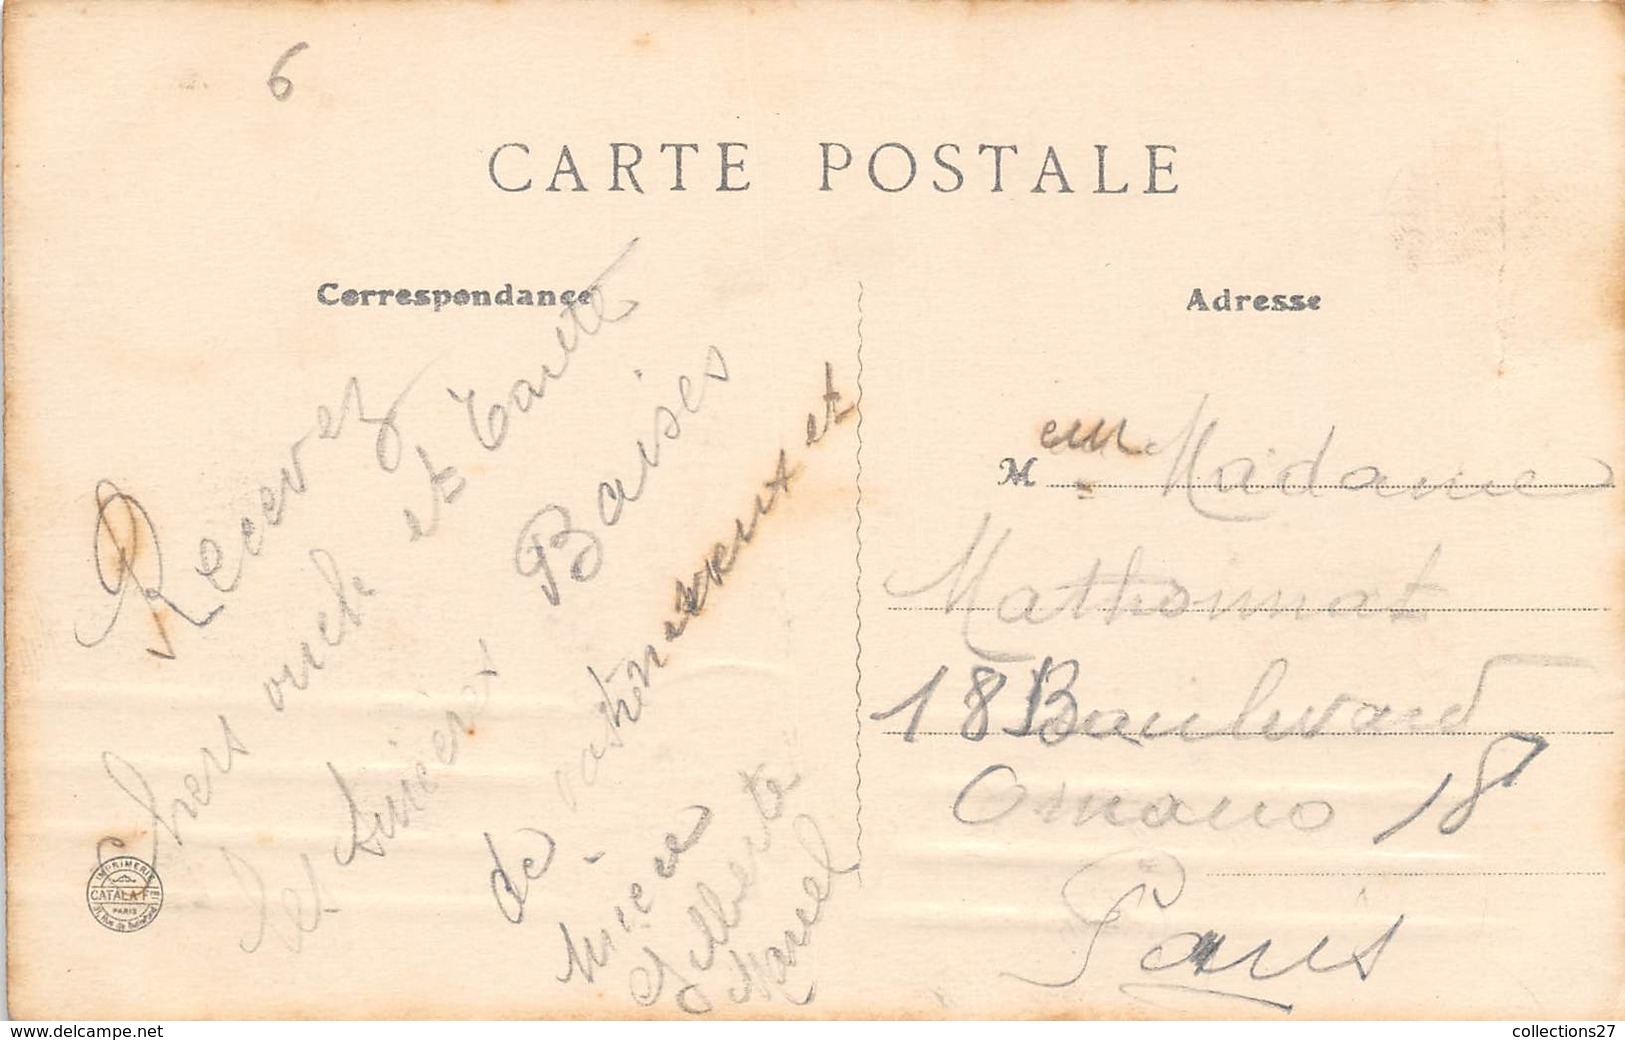 6
CARTE POSTALE
Correspondance
Adresse
Recevez
chers oncle et Tante
les sincères Baises
de votre neveux et
nièce
Gilberte
Marcel
M eur Madame
Mathonnat
18 Boulevard
Ornano 18
Paris
IMPRIMERIE
CATALA Fres
PARIS
www.delcampe.net
collections27